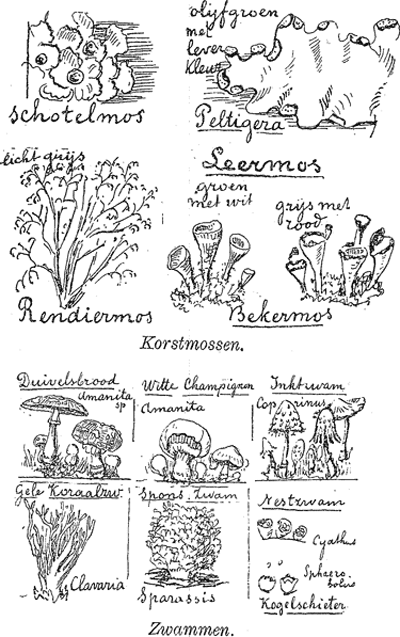 Schotelmos
olijfgroen
met
lever
kleur
Peltigera
Leermos
licht grijs
Rendiermos
groen
met wit
grijs met
rood
Bekermos
Korstmossen.
Duivelsbrood
Amanita
sp
Witte Champignon
Amanita
Inktzwam
Coprinus
Gele Koraalzw.
Clavaria
Spons. Zwam
Sparassis
Nestzwam
Cyathus
Sphaero
bolus
Kogelschieter
Zwammen.